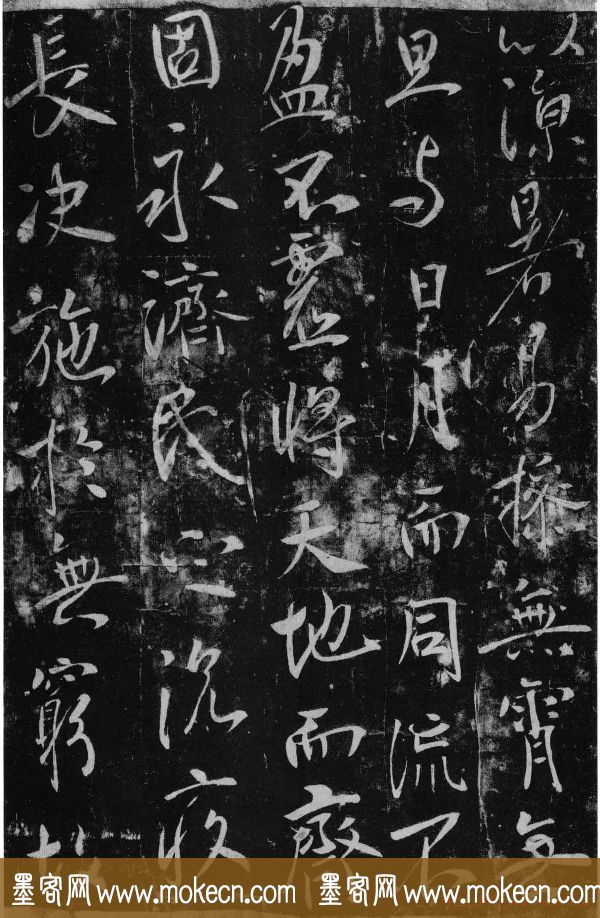 以涼暑易操無霄無
旦与日月而同流不
盈不虛將天地而齊
固永濟民之沉疾
長决施於無窮
墨客网 www.mokecn.com 墨客网 www.mokecn.com